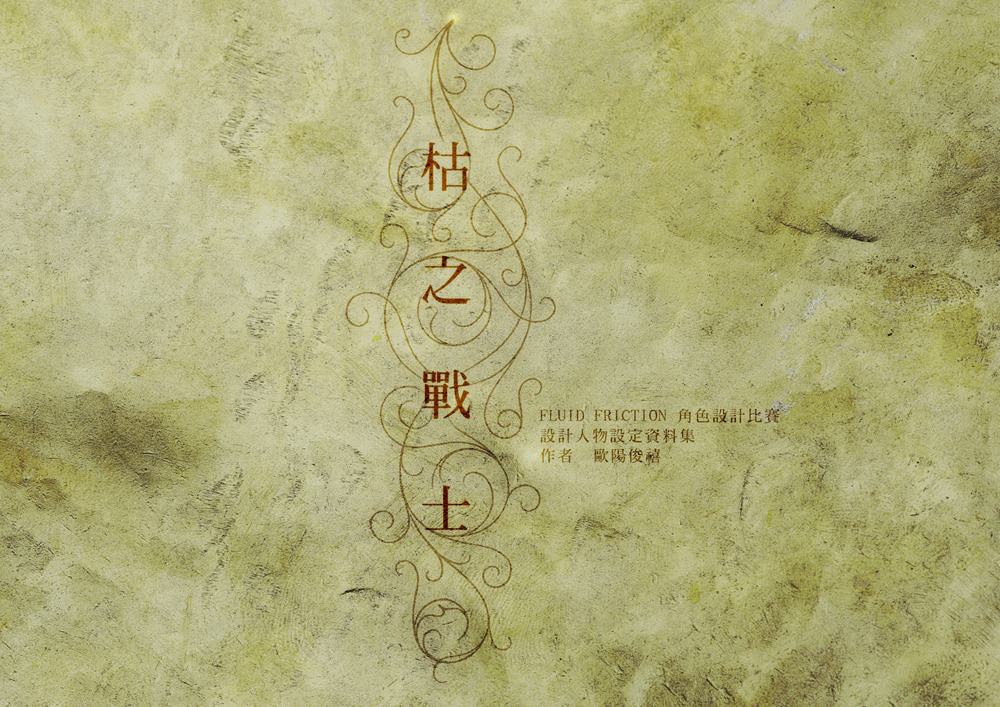 枯之戰士
FLUID FRICTION 角色設計比賽
設計人物設定資料集
作者　歐陽俊禧